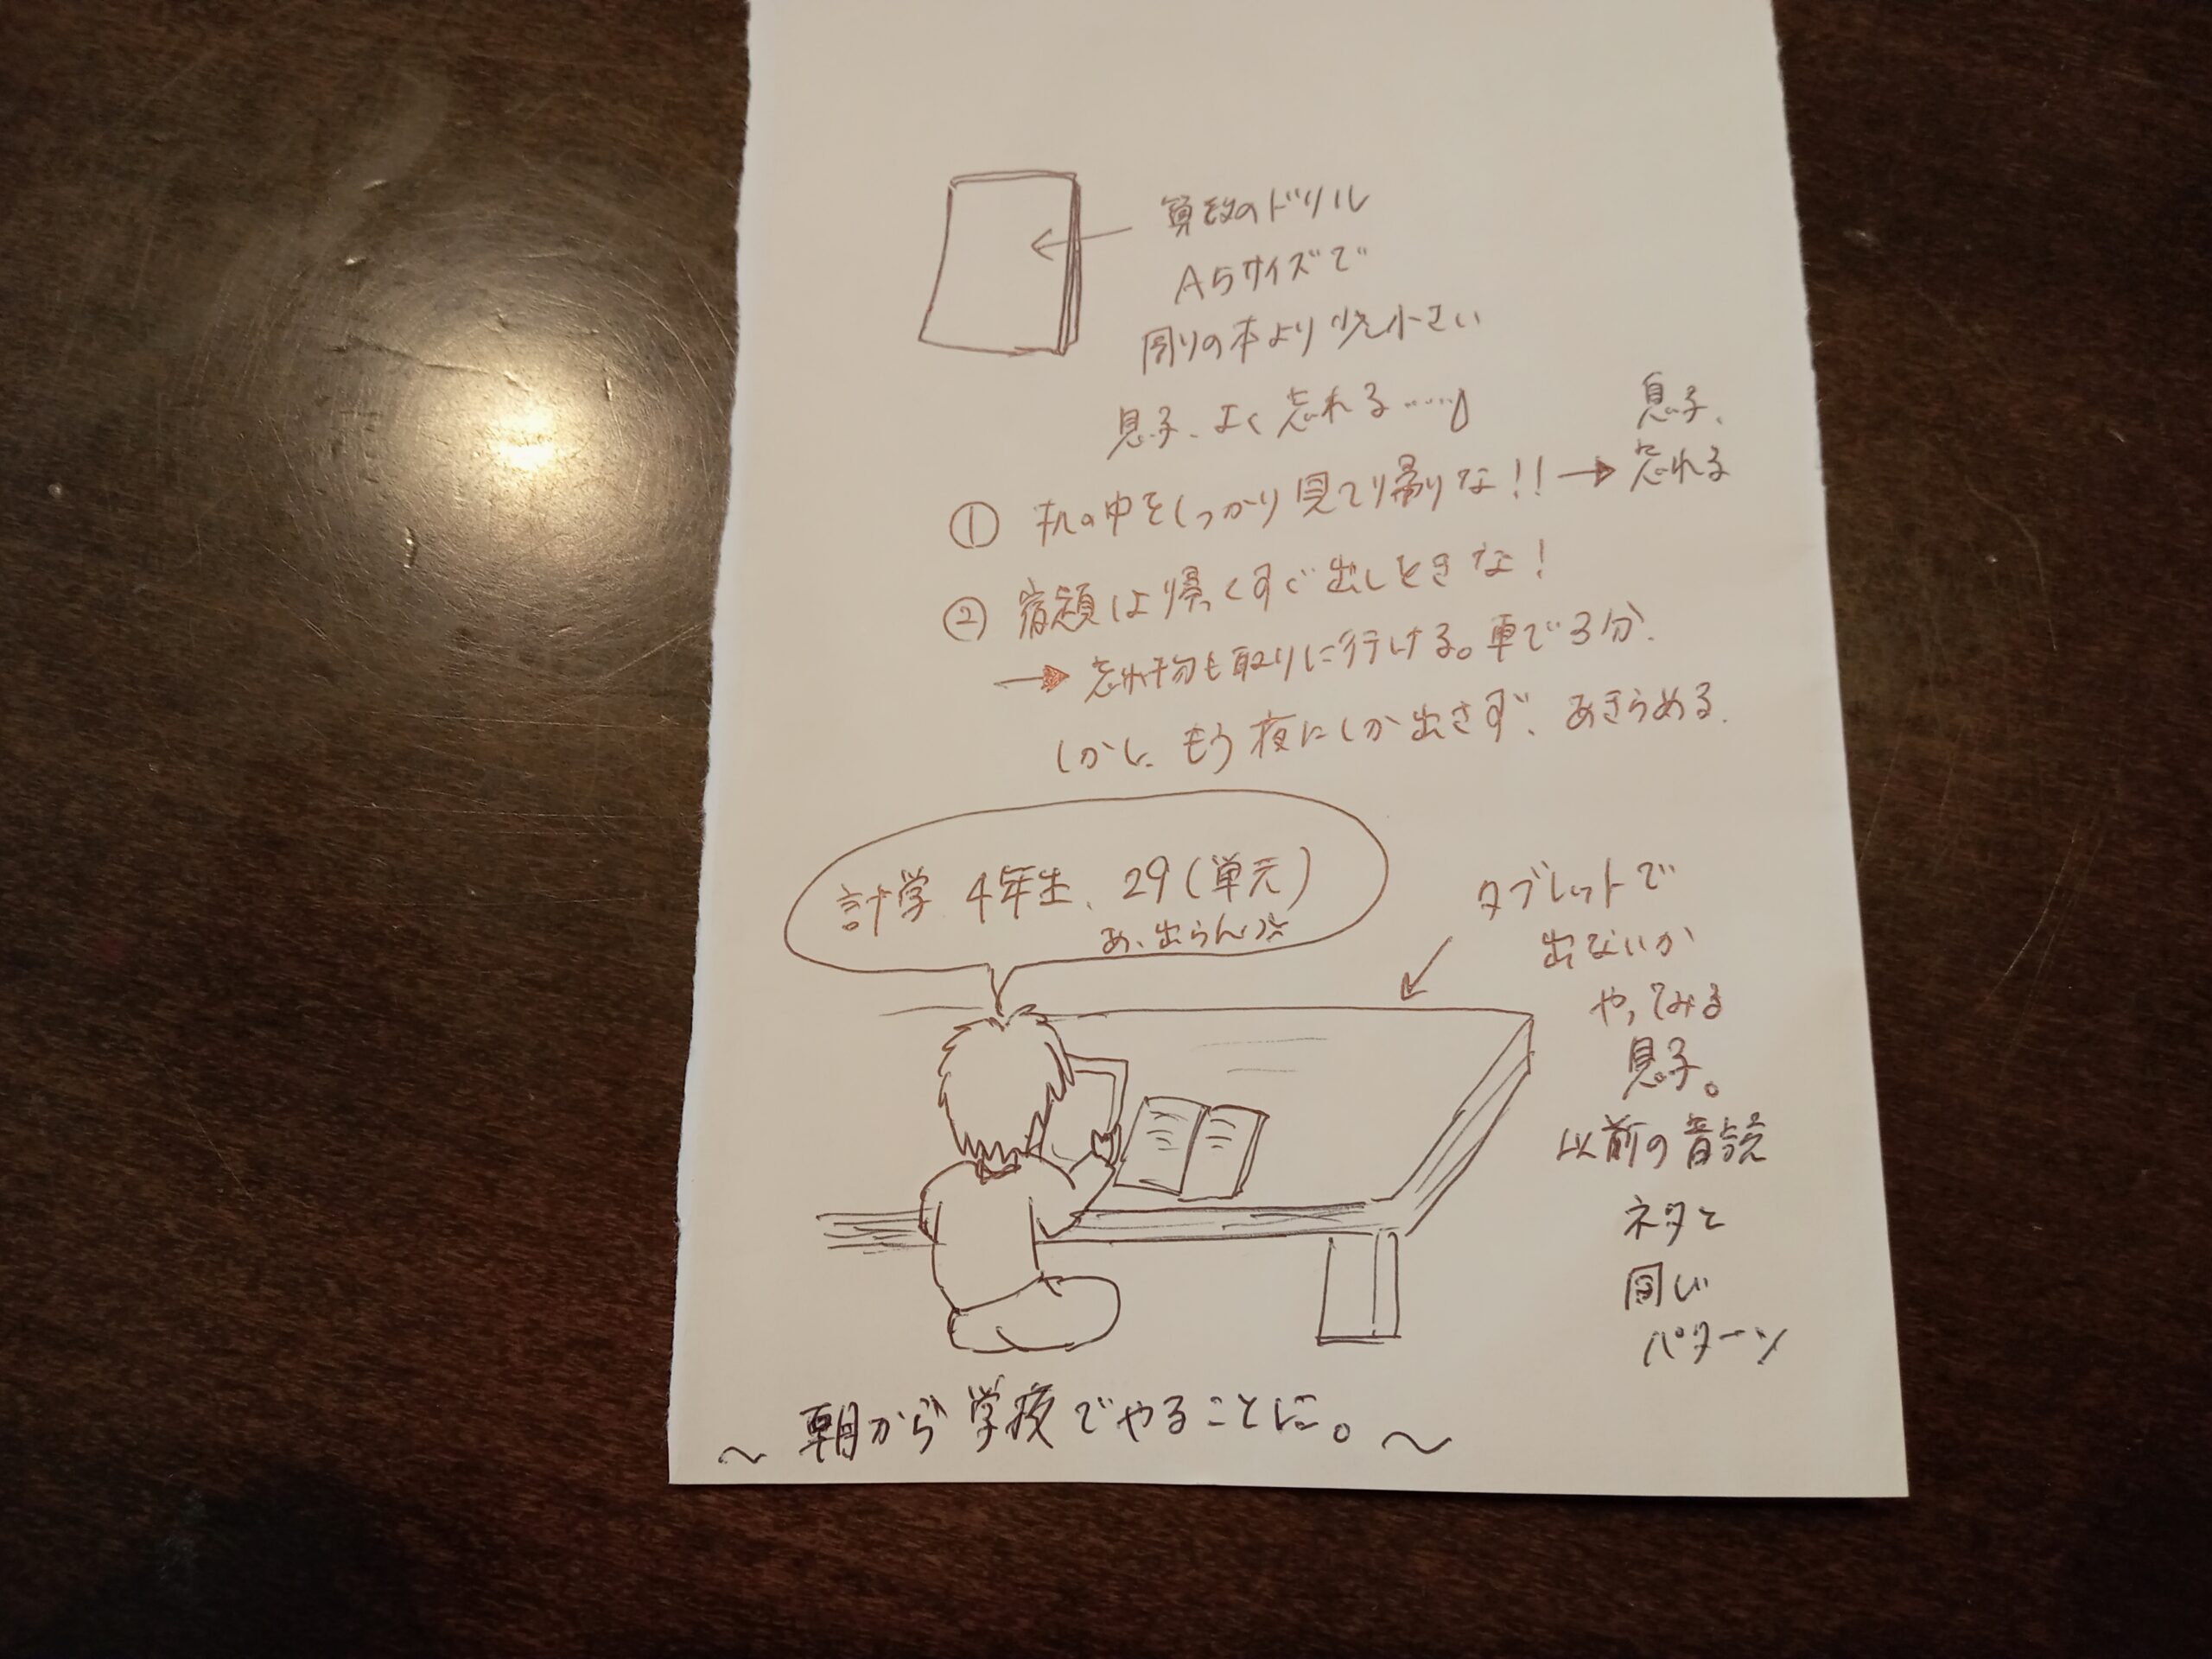 算数のドリル
A5サイズで
周りの本より少し小さい
息子、よく忘れる……
息子、
忘れる
① 机の中をしっかり見てり帰りな!!→
② 宿題は帰ってすぐ出しときな!
→ 忘れ物も取りに行ける。車で3分.
しかし、もう夜にしか出さず、あきらめる.
計学 4年生、29(単元)
あ、出らん
タブレットで
出ないか
やってみる
息子。
以前の音読
ネタと
同じ
パターン
〜 朝から学校でやることに。〜